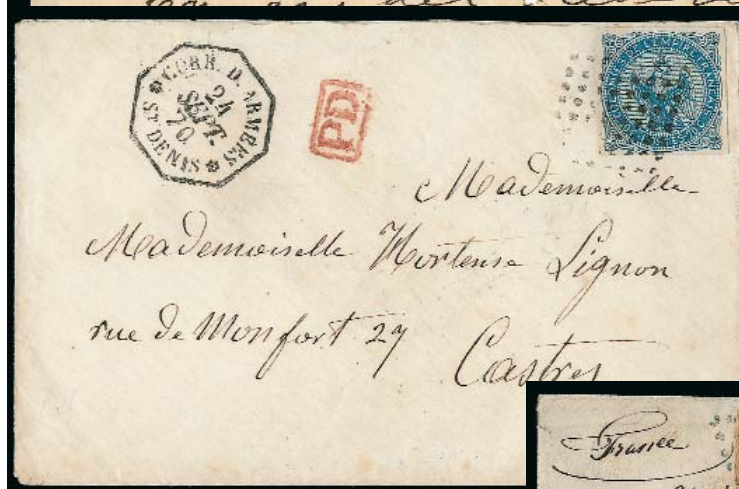 CORR. D. ARMEES
24
SEPT.
70
ST DENIS
PD
Mademoiselle
Mademoiselle Hortense Lignon
rue de Monfort 27
Castres
France